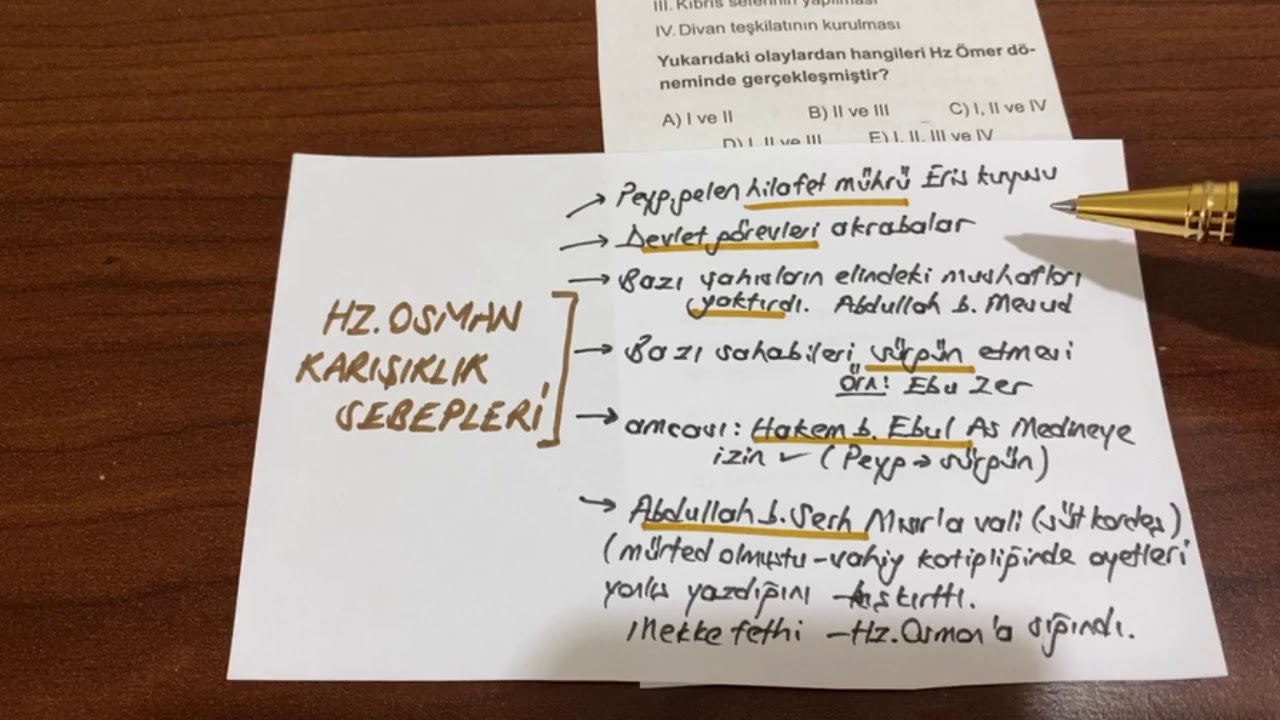 III. Kıbrıs seferinin yapılması
IV. Divan teşkilatının kurulması
Yukarıdaki olaylardan hangileri Hz Ömer dö-
neminde gerçekleşmiştir?
A) I ve II B) II ve III C) I, II ve IV
D) I, II ve III E) I, II, III ve IV
HZ. OSMAN
KARIŞIKLIK
SEBEPLERİ
→ Peyg.gelen hilafet mührü Eris kuyusu
→ Devlet görevleri akrabalar
→ Bazı şahısların elindeki mushafları
yaktırdı. Abdullah b. Mesud
→ Bazı sahabileri sürgün etmesi
Örn: Ebu Zer
→ amcası: Hakem b. Ebul As Medineye
izin ✓ (Peyg → sürgün)
→ Abdullah b. Serh Mısır'a vali (süt kardeş)
(mürted olmuştu - vahiy katipliğinde ayetleri
yanlış yazdığını
Mekke fethi - Hz. Osman'a sığındı.